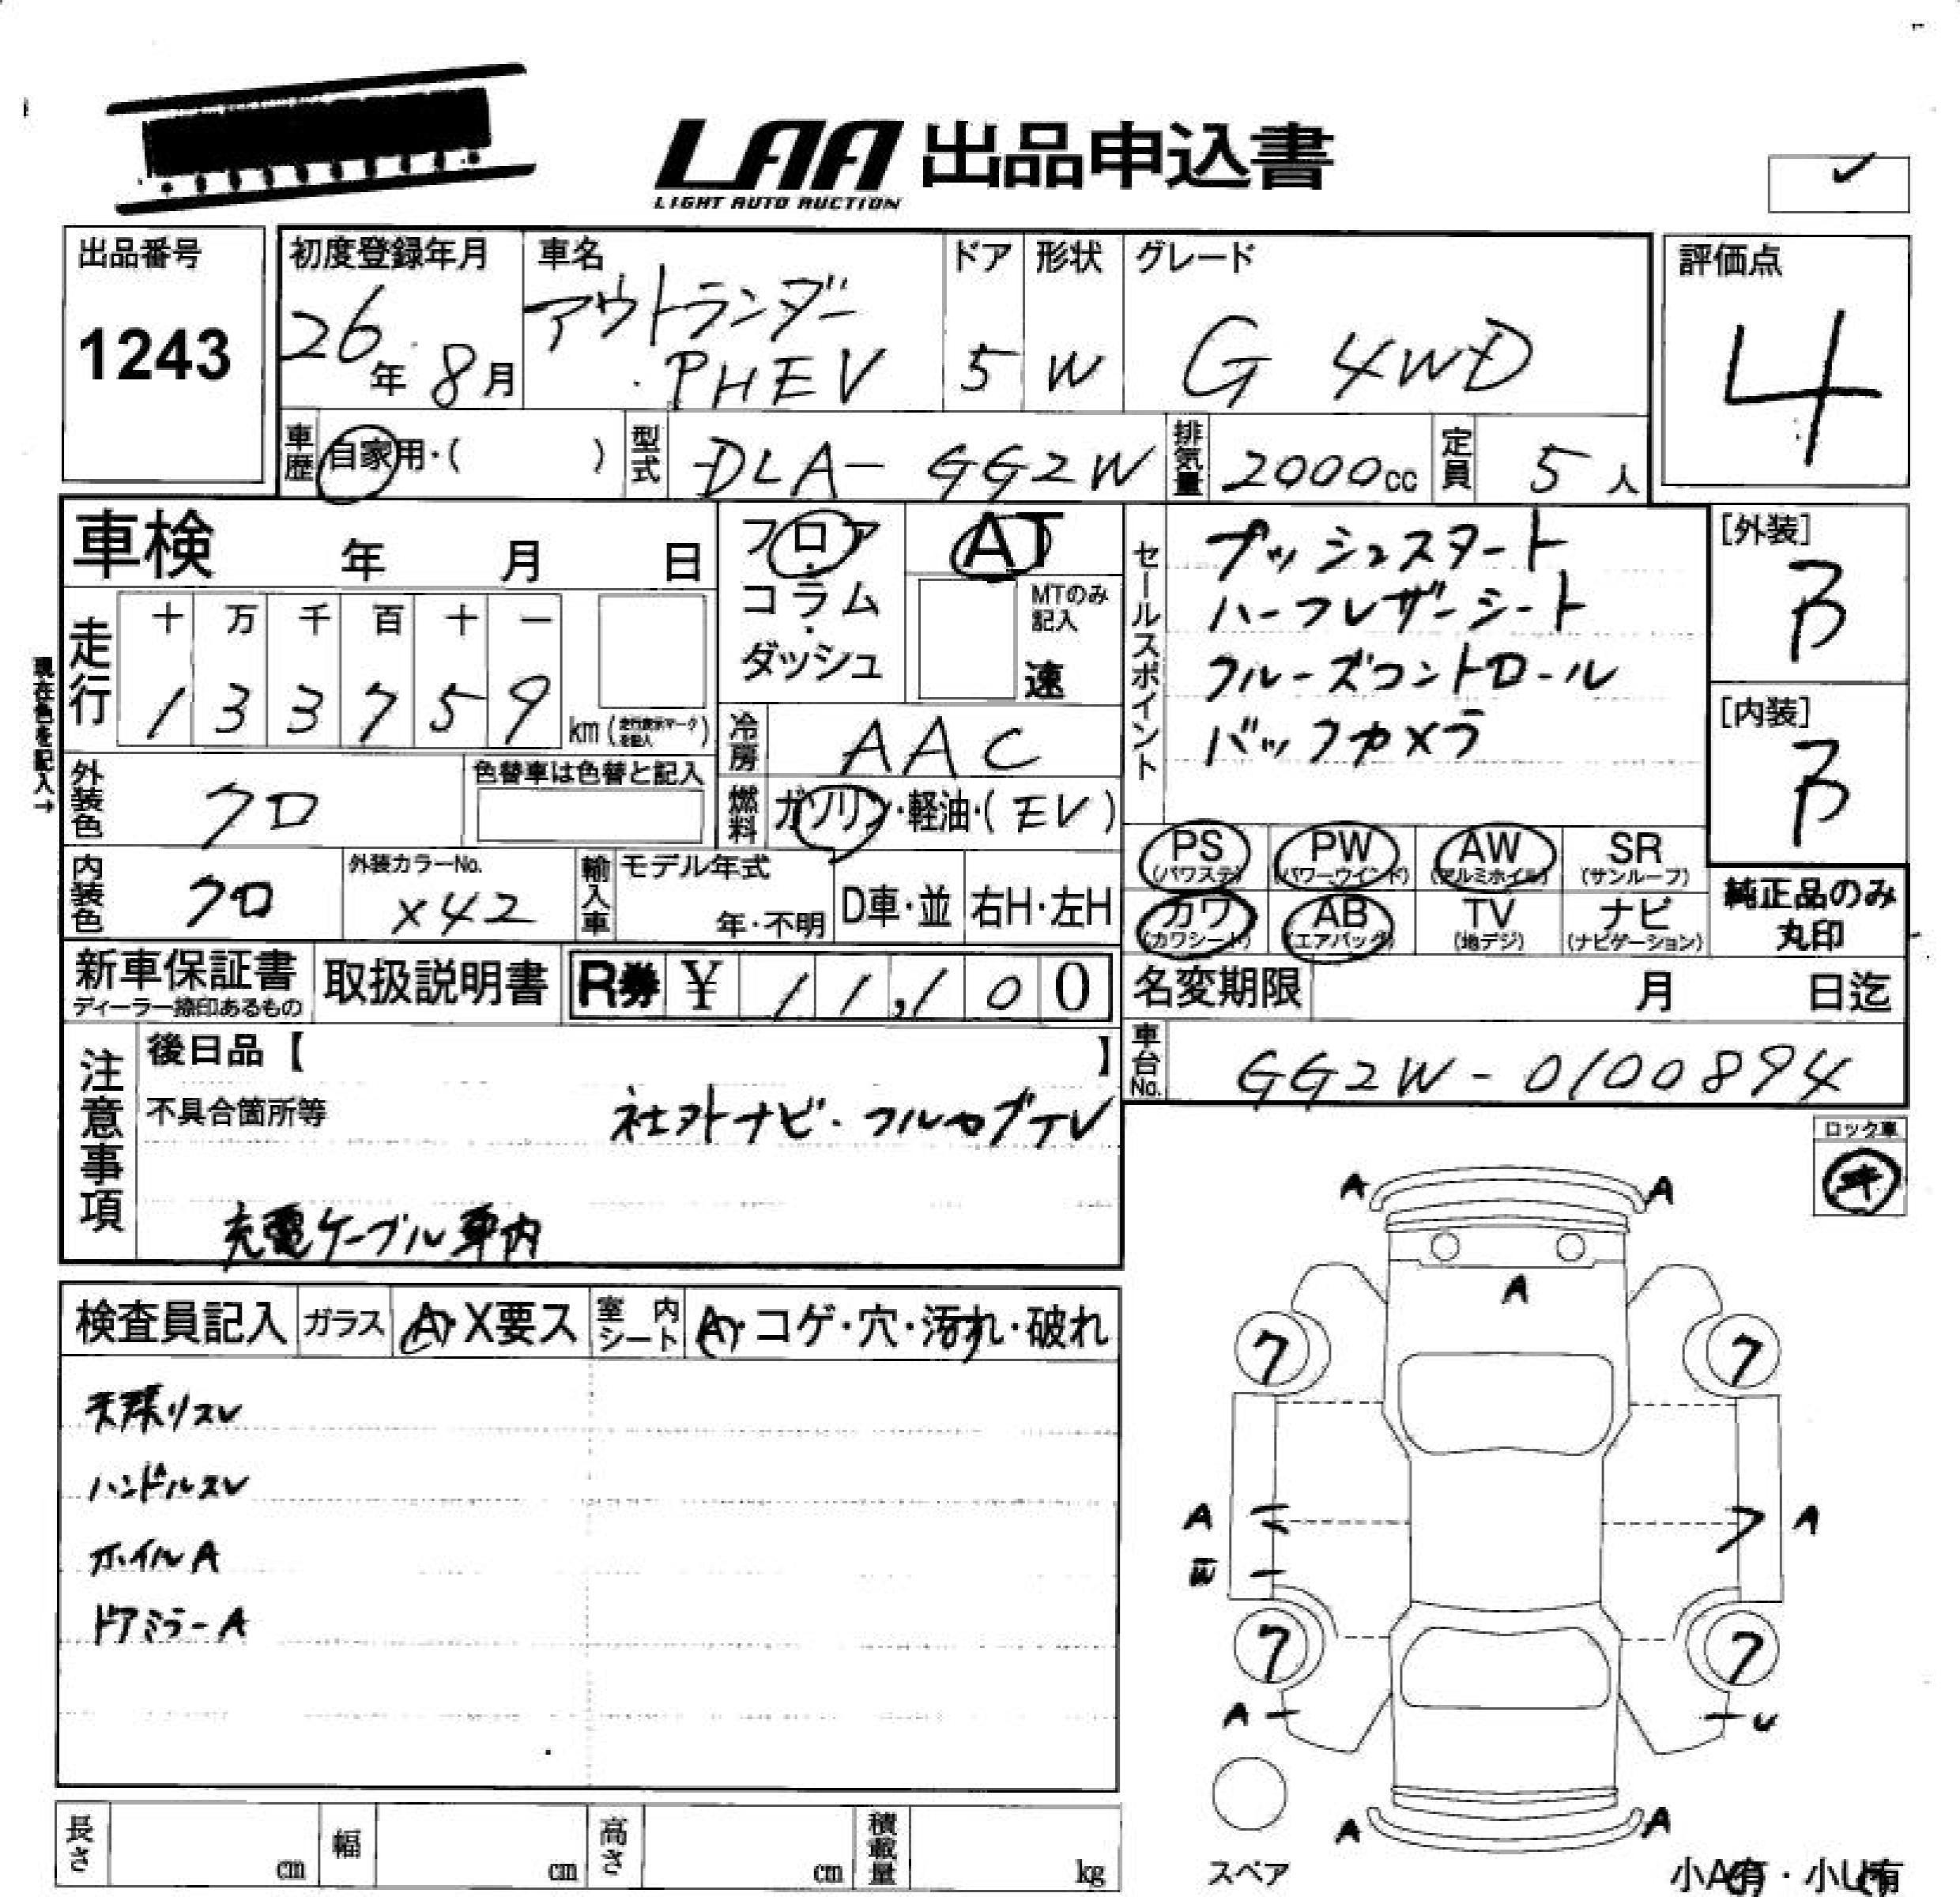 LAA 出品申込書
LIGHT AUTO AUCTION
出品番号
1243
初度登録年月
26年 8月
車名
アウトランダー
PHEV
ドア
5
形状
W
グレード
G 4WD
評価点
4
車歴
自家用・( )
型式
DLA-GG2W
排気量
2000cc
定員
5人
車検 年 月 日
フロア
・
コラム
・
ダッシュ
AT
MTのみ
記入
速
セールスポイント
プッシュスタート
ハーフレザーシート
クルーズコントロール
バックカメラ
[外装]
B
[内装]
B
現在色を記入→
走行
十 万 千 百 十 一
1 3 3 7 5 9
km (走行表示マークを記入)
冷房
AAC
外装色
クロ
色替車は色替と記入
燃料
ガソリン・軽油・(EV)
内装色
クロ
外装カラーNo.
X42
輸入車
モデル年式
年・不明
D車・並
右H・左H
PS
(パワステ)
PW
(パワーウインド)
AW
(アルミホイル)
SR
(サンルーフ)
カワ
(カワシート)
AB
(エアバッグ)
TV
(地デジ)
ナビ
(ナビゲーション)
純正品のみ
丸印
新車保証書
ディーラー捺印あるもの
取扱説明書
R券 ¥ 11,100
名変期限 月 日迄
車台No.
GG2W-0100894
注意事項
後日品【 】
不具合箇所等
社外ナビ・フルセグTV
充電ケーブル車内
ロック車
キ
検査員記入
ガラス
A・X要ス
室内シート
A・コゲ・穴・汚れ・破れ
天張リスレ
ハンドルスレ
ホイルA
ドアミラーA
A A
A
7 7
A A
W
7 7
A U
A A
スペア
小A有・小U有
長さ cm
幅 cm
高さ cm
積載量 kg